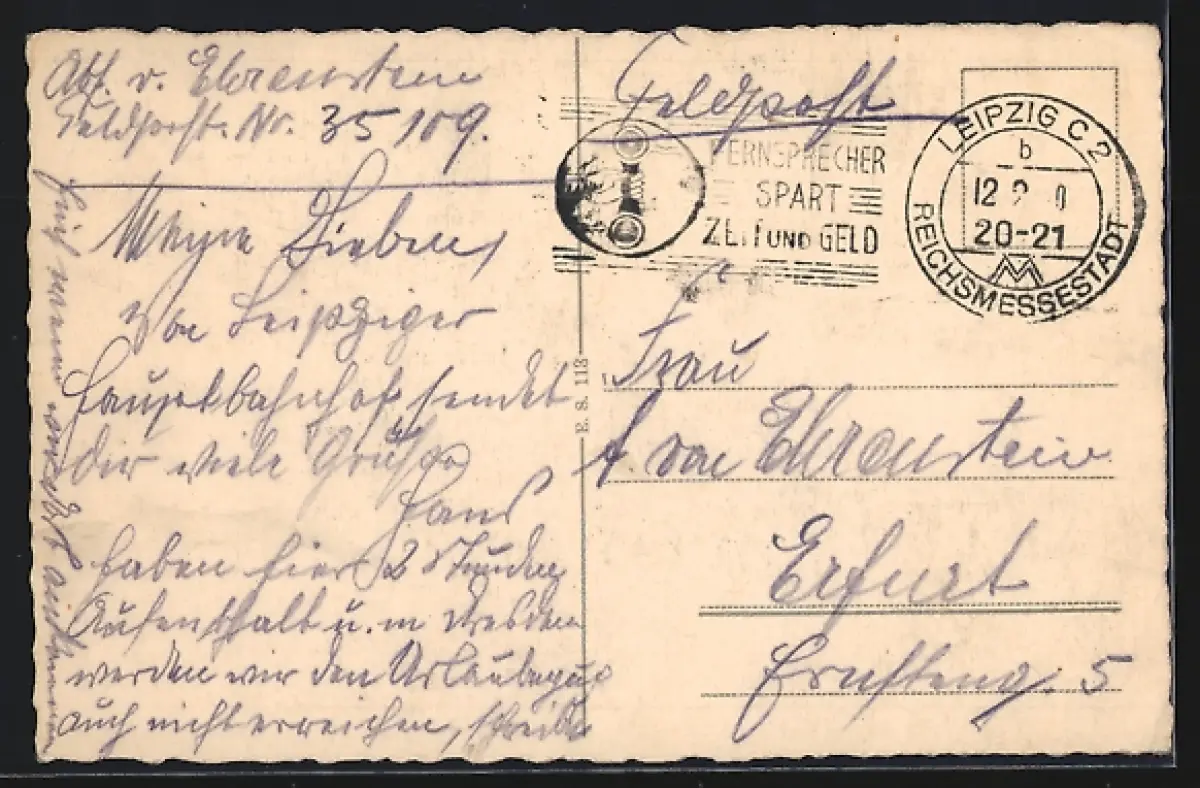 Abs. v. Ehrenstein
Feldpost. Nr. 35109.
Meine Lieben,
Von Leipziger
Hauptbahnhof sendet
dir viele Grüße
Hans
haben hier 2 Stunden
Aufenthalt u. in Dresden
werden wir den Urlauberzug
auch nicht erreichen, schreibe
wann
Feldpost
FERNSPRECHER
SPART
ZEIT UND GELD
LEIPZIG C 2
b
12 2 0
20-21
REICHSMESSESTADT
E. S. 113
Frau
A. von Ehrenstein
Erfurt
5